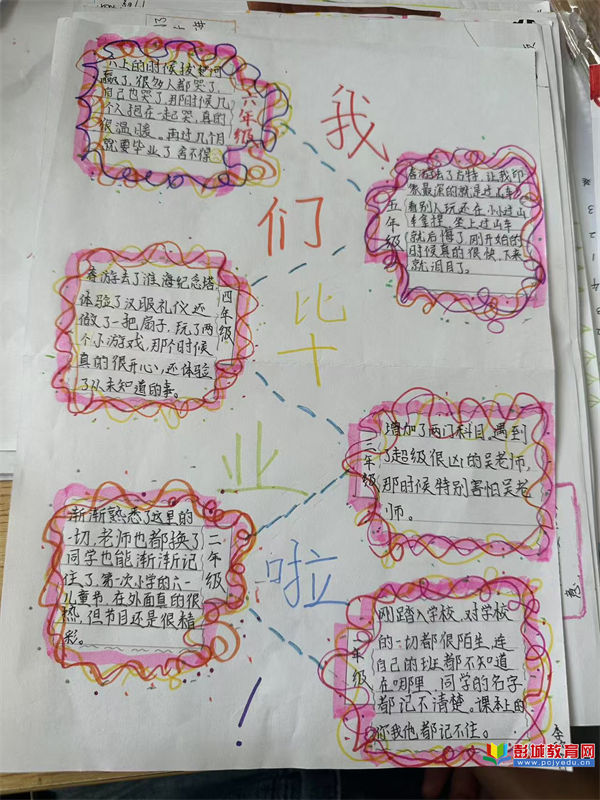 我们毕业啦!
六年级
六上的时候拔趣河
赢了,很多人都哭了,
自己也哭了,那时候几
个人抱在一起哭,真的
很温暖。再过几个月
就要毕业了舍不得
五年级
春游去了方特,让我印
象最深的就是过山车,
看别人玩还在小小过山
车拿捏,坐上过山车
就后悔了,刚开始的
时候真的很快,下来
就泪目了。
四年级
春游去了淮海纪念塔,
体验了汉服礼仪,还
做了一把扇子,玩了两
个小游戏,那个时候
真的很开心,还体验
了从未知道的事。
三年级
增加了两门科目。遇到
了超级很凶的吴老师,
那时候特别害怕吴老
师。
二年级
渐渐熟悉了这里的
一切,老师也都换了
同学也能渐渐记
住了。第一次小学的六一
儿童节,在外面真的很
热,但节目还是很精
彩。
一年级
刚踏入学校,对学校
的一切都很陌生,连
自己的班都不知道
在哪里,同学的名字
都记不清楚。课本上的
你我他,都记不住。
彭城教育网
www.pcjyedu.cn